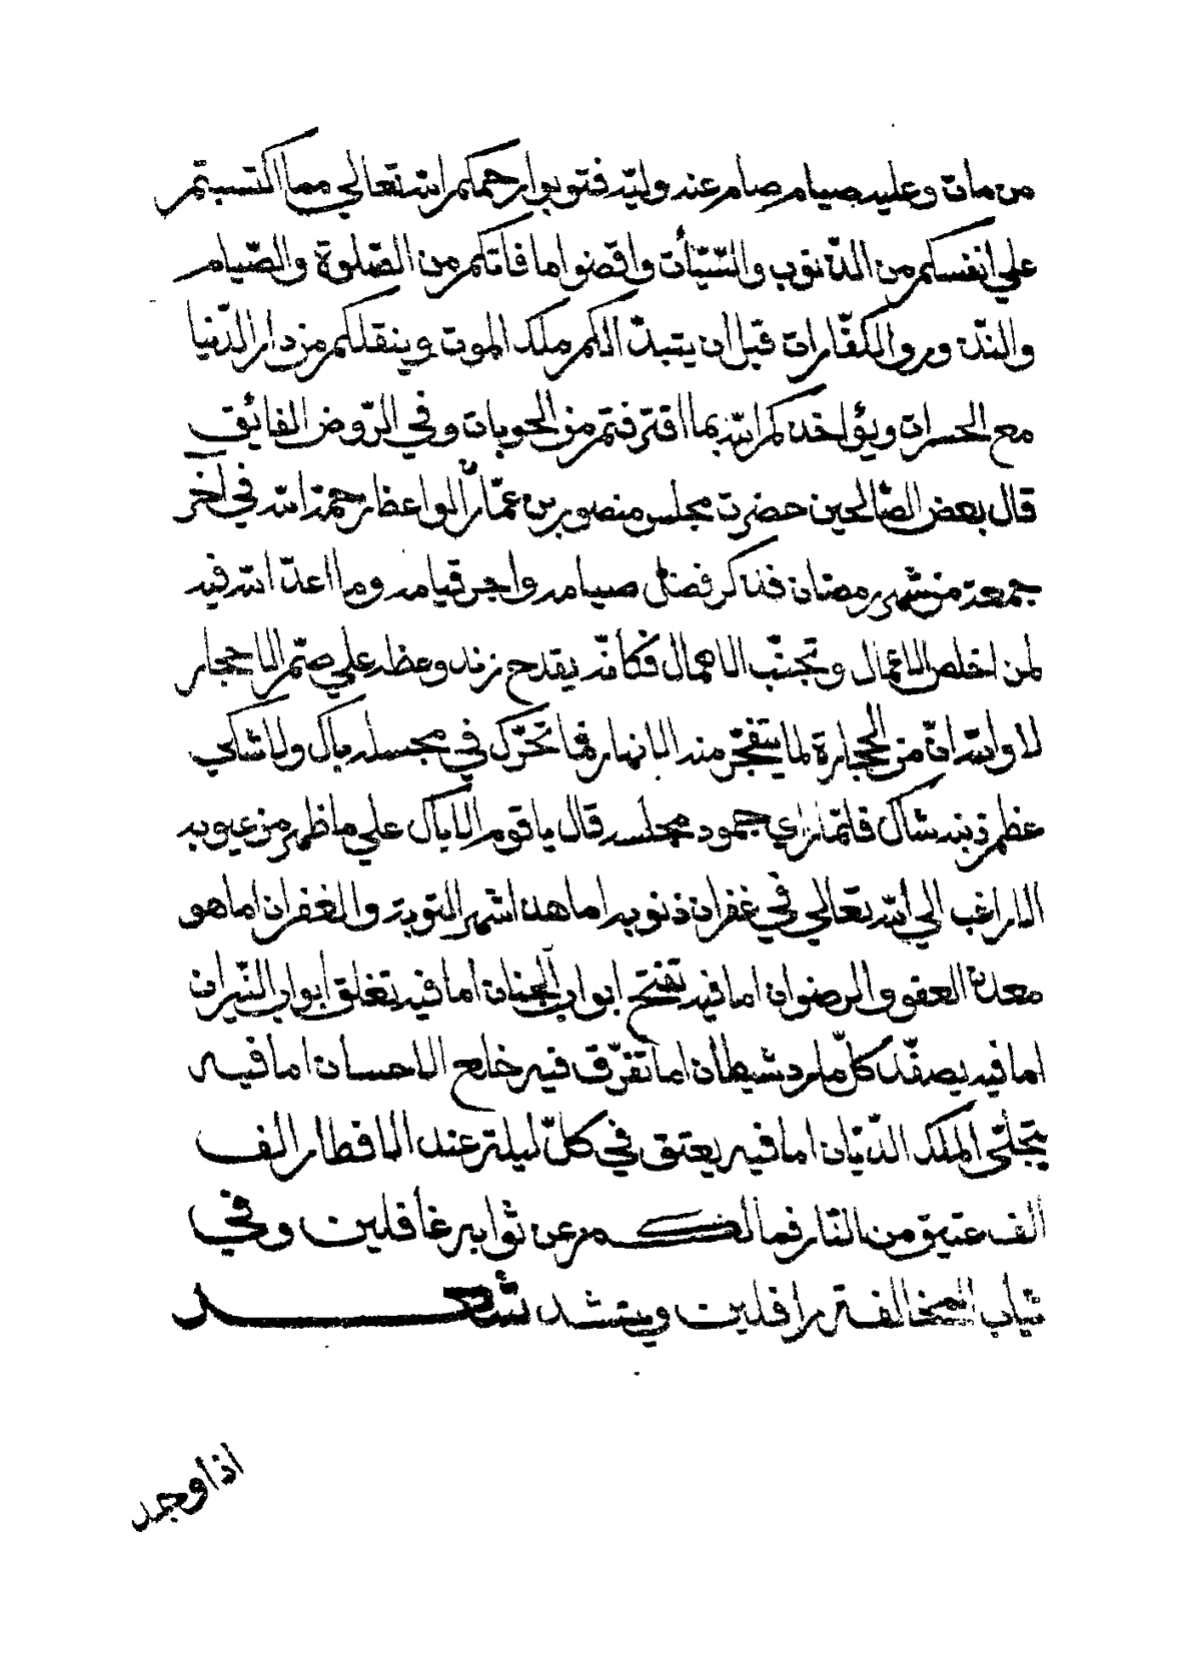 من مات وعليه صيام صام عنه وليّه فتوبوا رحمكم الله تعالي مما اكتسبتم
علي انفسكم من الذّنوب والسّيّأت واقضوا ما فاتكم من الصّلوة والصّيام
والنّذور والكفّارات قبل ان يتبدّا لكم ملك الموت وينقلكم من دار الدّنيا
مع الحسرات ويؤاخذكم الله بما اقترفتم من الحوبات وفي الرّوض الفائق
قال بعض الصّالحين حضرت مجلس منصور بن عمّار الواعظ رحمه الله في آخر
جمعة من شهر رمضان فذكر فضل صيامه واجر قيامه وما اعدّ الله فيه
لمن اخلص الاعمال وتجنّب الاهمال فكأنّه يقدح زند وعظه علي صمّ الاحجار
لا والله انّ من الحجارة لما يتفجّر منه الانهار فما تحرّك في مجسله باك ولا شكي
عظم ذنبه شاك فلمّا رأي جمود مجلسه قال يا قوم الا باك علي ما ظهر من عيوبه
الا راغب الي الله تعالي في غفران ذنوبه اما هذا شهر التوبة والغفران اما هو
معدن العفو والرضوان اما فيه تفتح ابواب الجنان اما فيه تغلق ابواب النّيران
اما فيه يصفّد كلّ مارد شيطان اما تفرّق فيه خلع الاحسان اما فيه
يتجلّي الملك الدّيّان اما فيه يعتق في كلّ ليلة عند الافطار الف
الف عتيق من النّار فما لكم عن ثوابه غافلين وفي
ثياب المخالفة رافلين وينشد شعر
اذا وجد